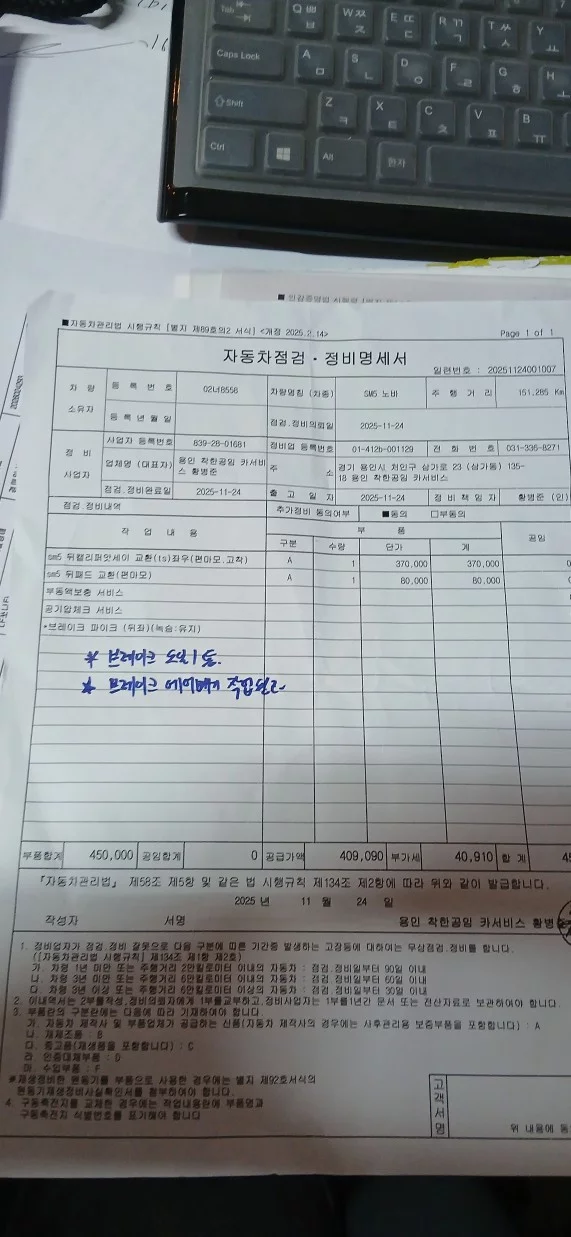 Tab
Q ㅃ ㅂ
W ㅉ ㅈ
E ㄸ ㄷ
R ㄲ ㄱ
T ㅆ ㅅ
Y ㅛ
Caps Lock
A ㅁ
S ㄴ
D ㅇ
F ㄹ
G ㅎ
H ㅗ
Shift
Z ㅋ
X ㅌ
C ㅊ
V ㅍ
B ㅠ
Ctrl
Alt
한자
■자동차관리법 시행규칙 [별지 제89호의2 서식] <개정 2025.2.14>
Page 1 of 1
자동차점검·정비명세서
일련번호 : 20251124001007
차 량
소유자
등 록 번 호
02너8556
차량명칭 (차종)
SM5 노바
주 행 거 리
151,285 Km
등 록 년 월 일
점검.정비의뢰일
2025-11-24
정 비
사업자
사업자 등록번호
839-28-01681
정비업 등록번호
01-412b-001129
전 화 번 호
031-335-8271
업체명 (대표자)
용인 착한공임 카서비스 황병준
주 소
경기 용인시 처인구 삼가로 23 (삼가동) 135-
18 용인 착한공임 카서비스
점검.정비완료일
2025-11-24
출 고 일 자
2025-11-24
정 비 책 임 자
황병준 (인)
점검.정비내역
추가정비 동의여부
■동의 □부동의
작 업 내 용
부 품
공임
구분
수량
단가
계
sm5 뒤캘리퍼앗세이 교환(ts)좌우(편마모.고착)
A
1
370,000
370,000
0
sm5 뒤패드 교환(편마모)
A
1
80,000
80,000
부동액보충 서비스
공기압체크 서비스
*브레이크 파이크 (뒤좌)(녹슴:유지)
* 브레이크 오일 1통.
* 브레이크 에어빼기 작업필요
부품합계
450,000
공임합계
0
공급가액
409,090
부가세
40,910
합 계
45
「자동차관리법」 제58조 제5항 및 같은 법 시행규칙 제134조 제2항에 따라 위와 같이 발급합니다.
2025 년 11 월 24 일
작성자 서명
용인 착한공임 카서비스 황병준
1. 정비업자가 점검.정비 잘못으로 다음 구분에 따른 기간중 발생하는 고장등에 대하여는 무상점검.정비를 합니다.
([자동차관리법 시행규칙] 제134조 제1항 제2호)
가. 차령 1년 미만 또는 주행거리 2만킬로미터 이내의 자동차 : 점검.정비일부터 90일 이내
나. 차령 3년 미만 또는 주행거리 6만킬로미터 이내의 자동차 : 점검.정비일부터 60일 이내
다. 차령 3년 이상 또는 주행거리 6만킬로미터 이상의 자동차 : 점검.정비일부터 30일 이내
2. 이내역서는 2부를작성,정비의뢰자에게 1부를교부하고,정비사업자는 1부를1년간 문서 또는 전산자료로 보관하여야 합니다.
3. 부품란의 구분란에는 다음에 따라 기재하여야 합니다.
가. 자동차 제작사 및 부품업체가 공급하는 신품(자동차 제작사의 경우에는 사후관리용 보증부품을 포함합니다) : A
나. 재제조품 : B
다. 중고품(재생용을 포함합니다) : C
라. 인증대체부품 : D
마. 수입부품 : F
※재생정비한 원동기를 부품으로 사용한 경우에는 별지 제92호서식의
원동기재생정비사실확인서를 첨부하여야 합니다.
4. 구동축전지를 교체한 경우에는 작업내용란에 부품명과
구동축전지 식별번호를 표기해야 합니다
고객서명
위 내용에 동